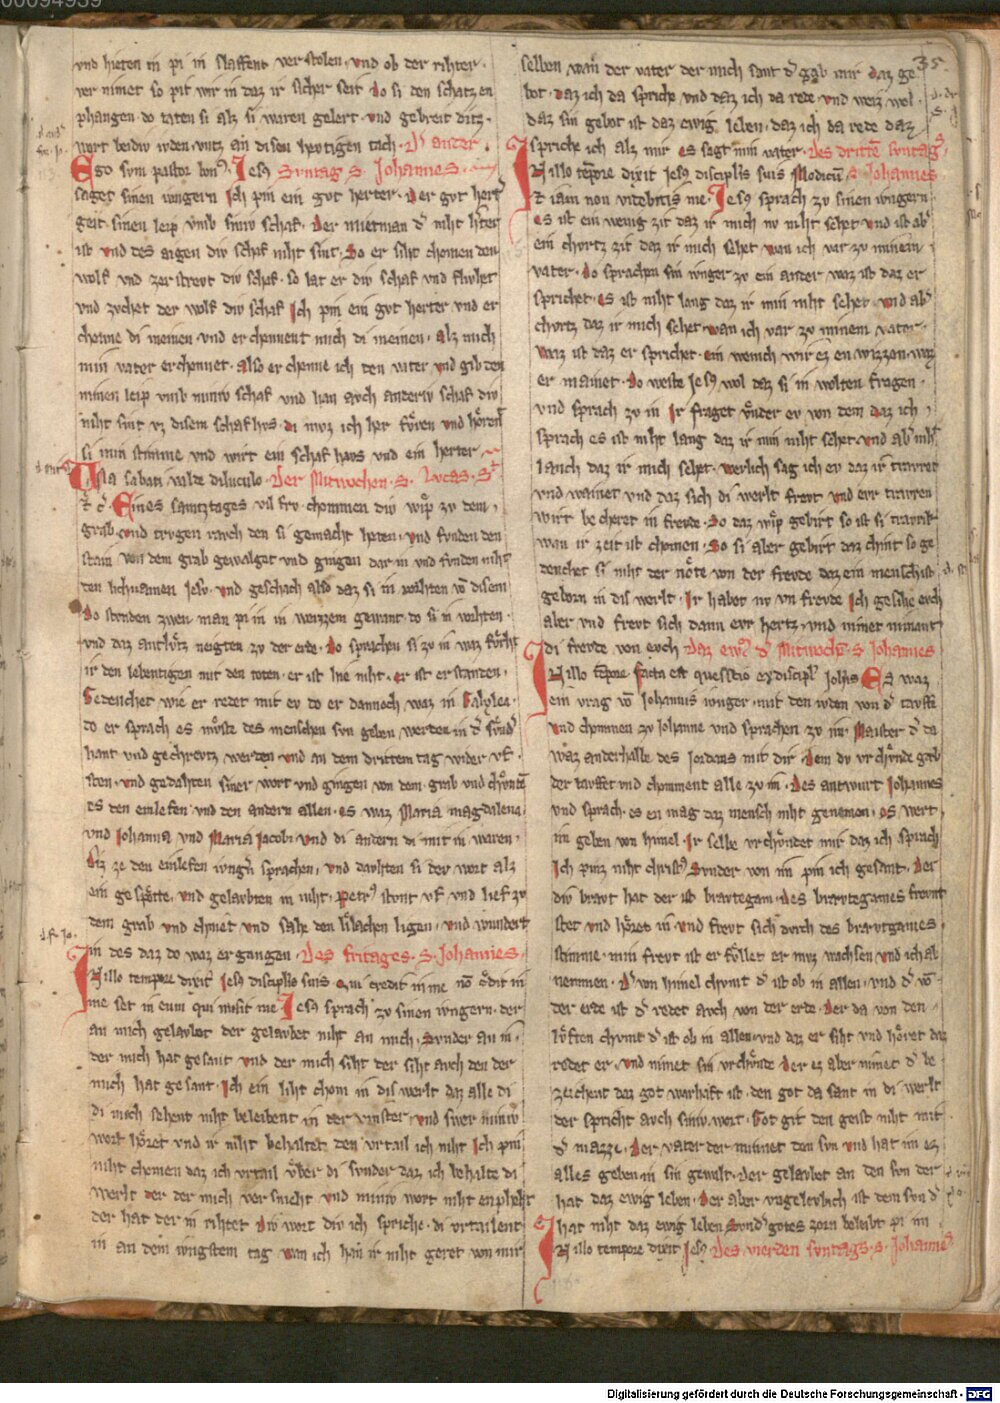 00094939
35.
vnd hieten in pi in slaffent verstolen, vnd ob der rihter
ver nimet so pit wir in daz ir sicher seit do si den schatz en
phangen do taten si alz si waren gelert vnd gebreit ditz
wort beidiv irden vntz an disen hevtigen tach. Der ander
Ego svm pastor bonus. Jesus Svntag. S. Johannes.
saget sinen ivngern Ich pin ein gvt herter. Der gvt hert
geit sinen leip vmb siniv schaf. Der mietman der niht herter
ist vnd des aigen div schaf niht sint. So er siht chomen den
wolf vnd zerstrevt div schaf. so lat er div schaf vnd flivhet
vnd zvchet der wolf div schaf Ich pin ein gvt herter vnd er
chenne di meinen. vnd er chennent mich di meinen. alz mich
min vater erchennet. also er chenne ich den vater vnd gib den
minen leip vmb miniv schaf vnd han avch anderiv schaf div
niht sint vz disem schafhvs. di mvz ich her fvren vnd hörent
si min stimme vnd wirt ein schaf havs vnd ein herter
Una sabati valde diluculo. Der Mitwochen. S. Lvcas. St
Eines samtztages vil frv chommen div wip zv dem
grab. vnd trvgen ravch den si gemacht heten. vnd fvnden den
stain von dem grab gewalgat vnd gingen dar in vnd fvnden niht
den lichnamen Jesv. vnd geschach also daz si in wahten von disem
Do stvnden zwen man pi in in weizzem gewant. do si in vorhten
vnd daz antlvtz neigten zv der erde. Do sprachen si zv in waz svcht
ir den lebentigen mit den toten. er ist hie niht. er ist er standen.
Gedenchet wie er redet mit ev do er dannoch waz in Galylea.
do er sprach es mvste des menschen svn geben werden in der svnder
hant vnd gechrevtz werden. vnd an dem dritten tag wider vf
sten. vnd gedahten siner wort vnd gingen von dem grab vnd chvnten
es den einlefen vnd den andern allen. es waz Maria magdalena.
vnd Johanna vnd Maria Jacobi. vnd di andern di mit in waren.
Diz ze den einlefen ivngern sprachen, vnd davhten si der wort alz
ein ge spötte, vnd gelavbten in niht. Petrus stvnt vf vnd lief zv
dem grab vnd chniet vnd sahe den lilachen ligen. vnd wundert
in des daz do waz ergangen. Des fritages. S. Johannes.
In illo tempore dixit Jesus discipulis suis. Qui credit in me non credit in
me set in eum qui misit me. Jesus sprach zv sinen ivngern. der
an mich gelavbet der gelavbet niht an mich. Svnder an in.
der mich hat gesant vnd der mich siht der siht avch den der
mich hat gesant. Ich ein liht chom in dis werlt daz alle di
di mich sehent niht beleibent in der vinster. vnd swer miniv
wort höret vnd ir niht behaltet den vrtail ich niht Ich pin
niht chomen daz ich vrtail vber di svnder daz ich behalte di
werlt der der mich versmeht vnd miniv wort niht enphehet
der hat der in rihtet Div wort div ich spriche. di vrtailent
in an dem ivngstem tag wan ich han ir niht geret von mir
selben. wan der vater der mich sant der gab mir daz ge
bot. daz ich da spriche vnd daz ich da rede vnd weiz wol
daz sin gebot ist daz ewig leben. daz ich da rede daz
spriche ich alz mir es sagt min vater. Des dritten svntag.
In illo tempore dixit Jesus discipulis suis Modicum S. Johannes
et iam non videbitis me. Jesus sprach zv sinen ivngern
es ist ein wenig zit daz ir mich nv niht sehet vnd ist aber
ein chvrtz zit daz ir mich sehet wan ich var zv minem
vater. Do sprachen sin ivnger zv ein ander waz ist daz er
sprichet. es ist niht lang daz ir min niht sehet. vnd aber
chvrtz daz ir mich sehet. wan ich var zv minem vater.
waz ist daz er sprichet. ein wenich wir ez en wizzen. waz
er mainet. Do weste Jesus wol daz si in wolten fragen.
vnd sprach zv in Ir fraget vnder ev von dem daz ich
sprach es ist niht lang daz ir min niht sehet. vnd aber niht
lanch daz ir mich sehet. werlich sag ich ev daz ir travret
vnd wainet vnd daz sich di werlt frevt vnd evr travren
wirt be cheret in frevde. So daz wip gebirt so ist si travrik
wan ir zeit ist chomen. So si aber gebirt daz chint so ge
denchet si niht der nöte von der frevde daz ein mensch ist
geborn in dis werlt. Ir habet nv vn frevde Ich gesihe evch
aber vnd frevt sich dann evr hertz. vnd nimet nimant
di frevde von evch Daz ewangelium der Mitwochen S. Johannes
In illo tempore. Facta est questio ex discipulis Johannis Es waz
ein vrag von Johannis ivnger. mit den ivden von der tavff
vnd chommen zv Johanne vnd sprachen zv im. Maister der da
waz anderhalbe des Jordans mit dir. dem dv vrchvnde gebt
der tavffet vnd chomment alle zv im. Des antwurt Johannes
vnd sprach. es en mag daz mensch niht genemen. es wert
im geben von himel. Ir selbe vrchvndet mir daz ich sprach
Ich pinz niht christus Svnder von im pin ich gesant. Der
div bravt hat der ist bravtegam. des bravtegames frevnt
stet vnd höret in. vnd frevt sich dvrch des bravtgames
stimme. min frevt ist er fvllet er mvz wachsen vnd ich ab
nemmen. Der von himel chvmt der ist ob in allen. vnd der von
der erde ist der redet avch von der erde. der da von den
lvften chvmt der ist ob in allen. vnd daz er siht vnd höret daz
redet er. vnd nimet sin vrchvnde. der ez aber nimet der be
zeichent daz got warhaft ist. den got da sant in di werlt
der spricht avch siniv wort. Got git den geist niht mit
der mazze. Der vater der minnet den svn vnd hat im ez
alles geben in sin gewalt. der gelavbet an den svn der
hat daz ewig leben. Der aber vngelevbich ist dem svn der
hat niht daz ewig leben. svnder gotes zorn beleibt pi im
In illo tempore dixit Jesus Des vierden svntags. S. Johannes
Digitalisierung gefördert durch die Deutsche Forschungsgemeinschaft - DFG